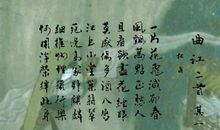 曲江二首其一
杜甫
一片花飛減却春
風飄萬點正愁人
且看欲盡花經眼
莫厭傷多酒入唇
江上小堂巢翡翠
苑邊高塚臥麒麟
細推物理須行樂
何用浮榮絆此身